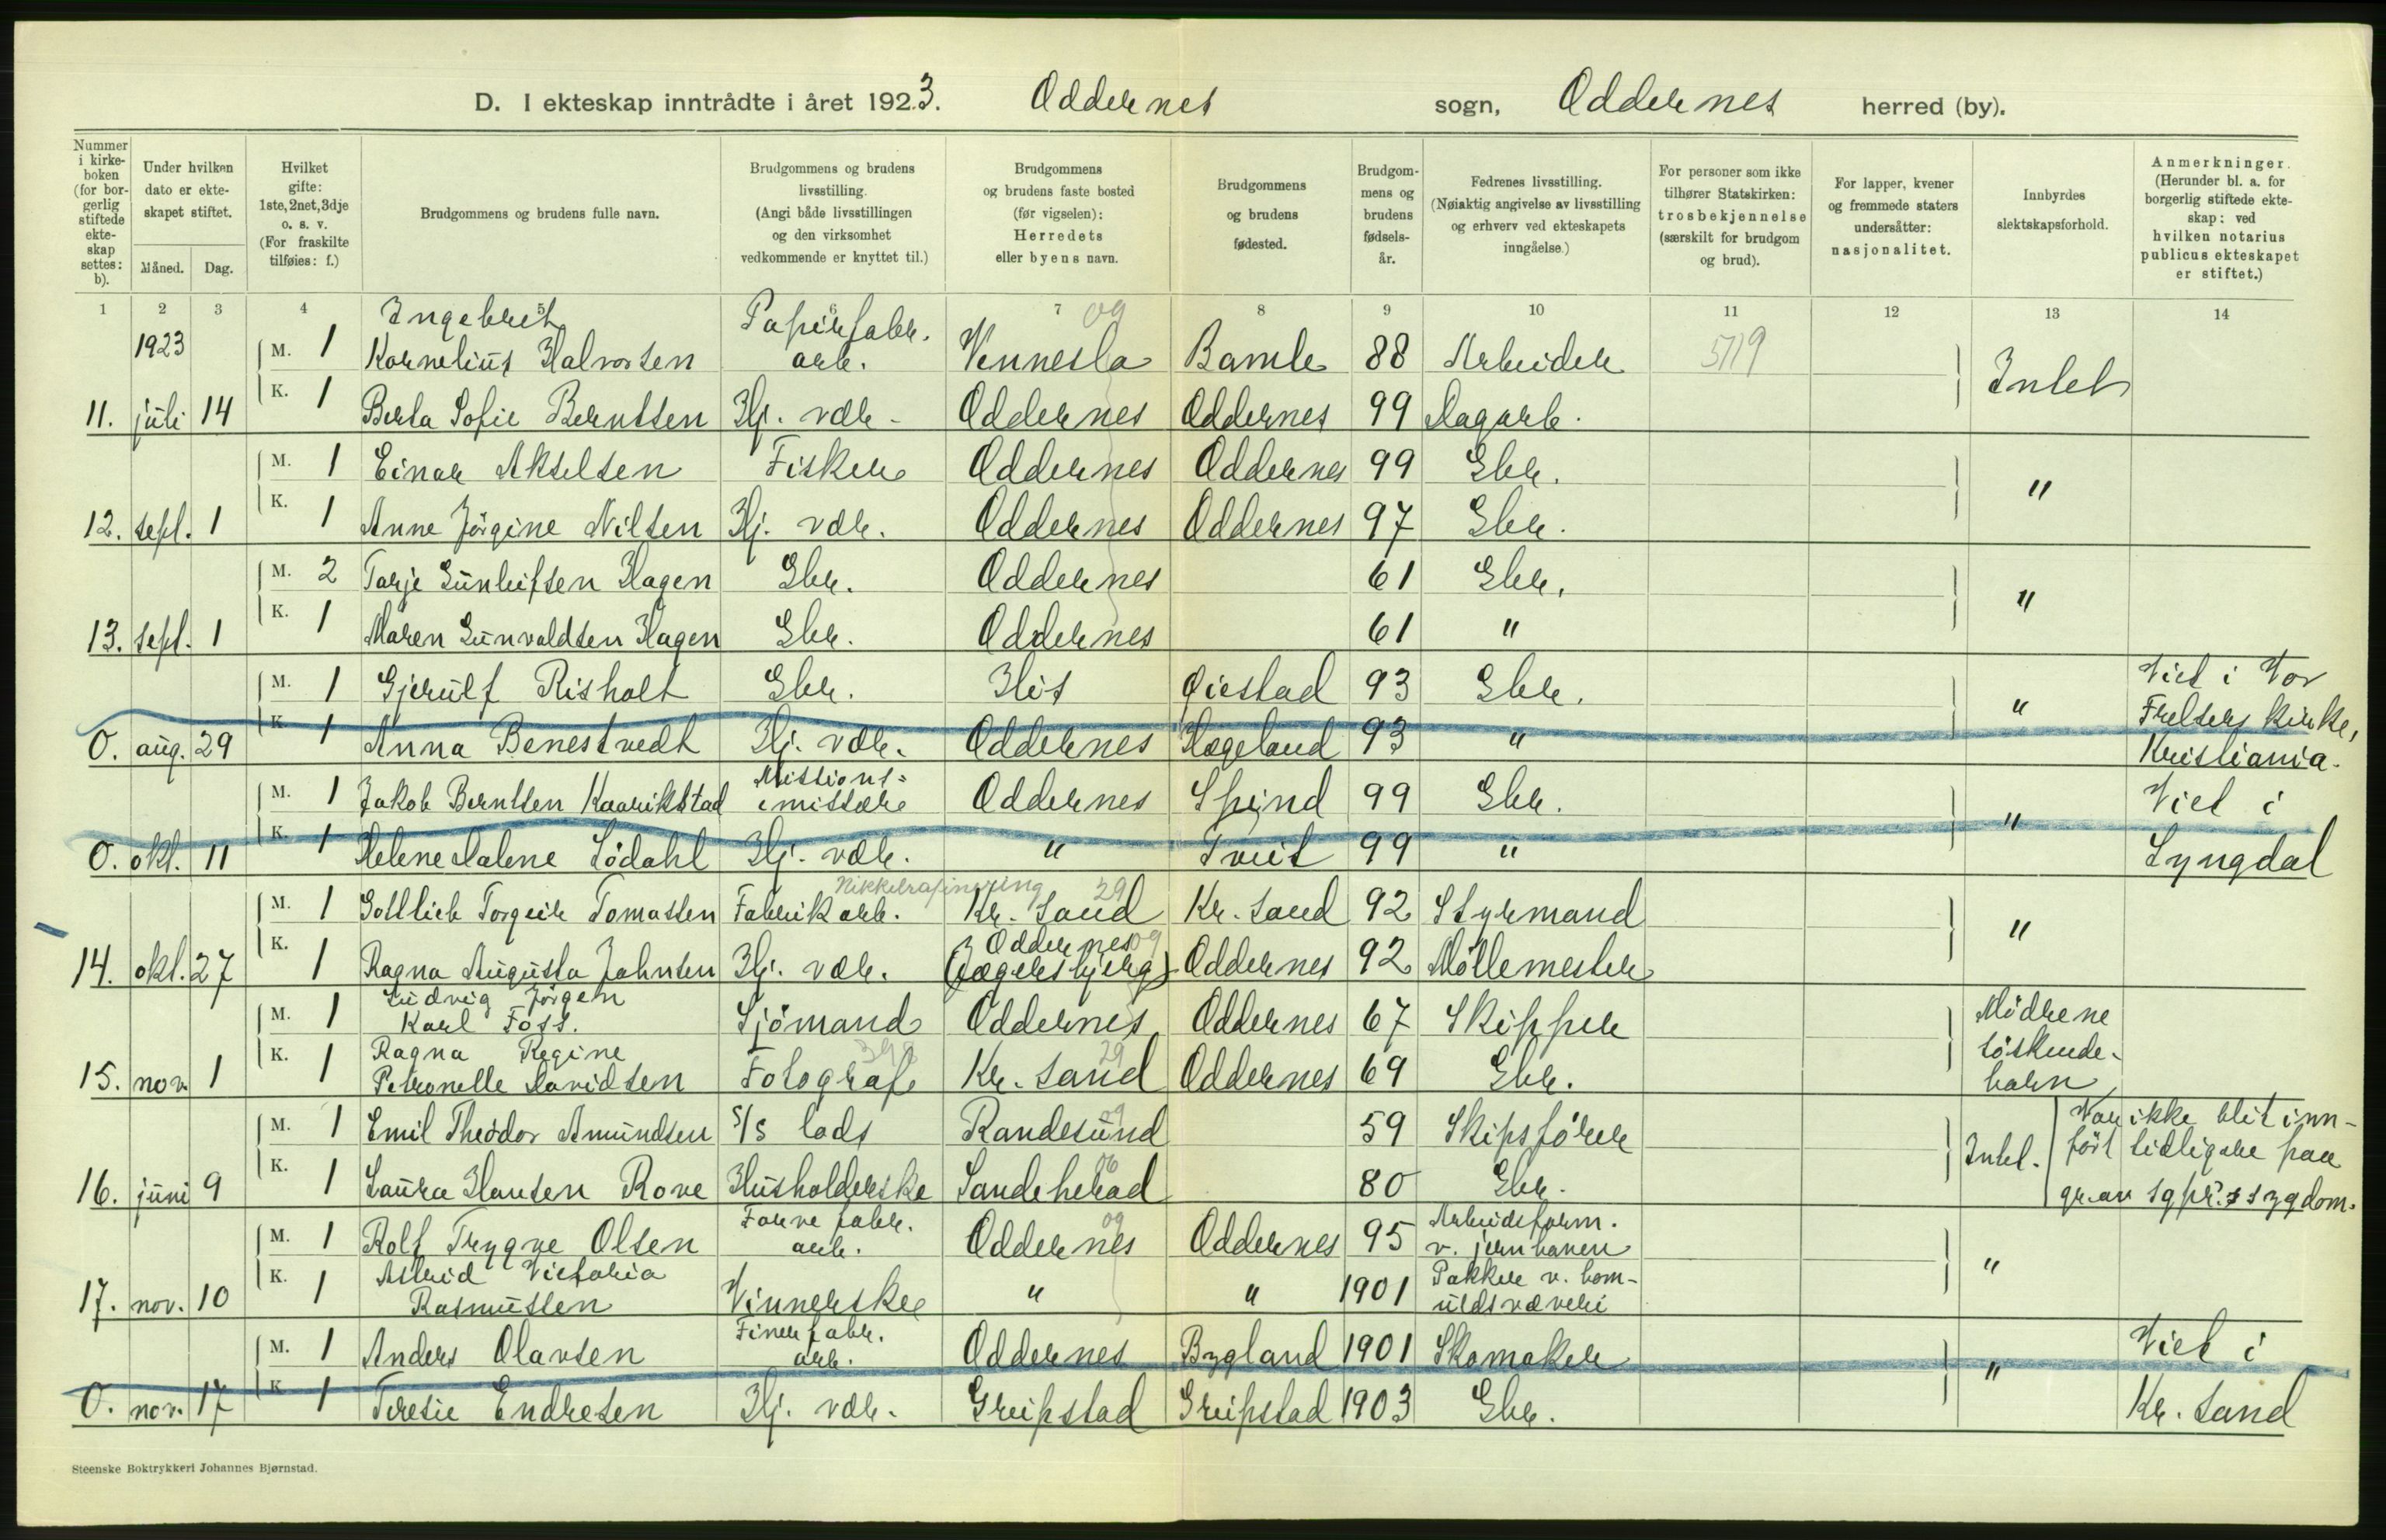 D. I ekteskap inntrådte i året 1923. Oddernes sogn, Oddernes herred (by).
Nummer i kirkeboken (for borgerlig stiftede ekteskap settes: b).
Under hvilken dato er ekteskapet stiftet.
Måned. Dag.
Hvilket gifte: 1ste, 2net, 3dje o. s. v. (For fraskilte tilføies: f.)
Brudgommens og brudens fulle navn.
Brudgommens og brudens livsstilling. (Angi både livsstillingen og den virksomhet vedkommende er knyttet til.)
Brudgommens og brudens faste bosted (før vigselen): Herredets eller byens navn.
Brudgommens og brudens fødested.
Brudgommens og brudens fødselsår.
Fedrenes livsstilling. (Nøiaktig angivelse av livsstilling og erhverv ved ekteskapets inngåelse.)
For personer som ikke tilhører Statskirken: trosbekjennelse (særskilt for brudgom og brud).
For lapper, kvener og fremmede staters undersåtter: nasjonalitet.
Innbyrdes slektskapsforhold.
Anmerkninger. (Herunder bl. a. for borgerlig stiftede ekteskap: ved hvilken notarius publicus ekteskapet er stiftet.)
1 2 3 4 5 6 7 8 9 10 11 12 13 14
Ingebret Papirfabr. 09
1923 M. 1 Kornelius Halvorsen arb. Vennesla Bamle 88 Arbeider 5119
Intet
11. juli 14 K. 1 Berta Sofie Berntsen Hj. vær. Oddernes Oddernes 99 Dagarb.
M. 1 Einar Akselsen Fisker Oddernes Oddernes 99 Gbr.
"
12. sept. 1 K. 1 Anne Jörgine Nilsen Hj. vær. Oddernes Oddernes 97 Gbr.
M. 2 Tarje Gunleifsen Hagen Gbr. Oddernes 61 Gbr.
"
13. sept. 1 K. 1 Maren Gunvaldsen Hagen Gbr. Oddernes 61 "
M. 1 Gjerulf Risholt Gbr. His Øiestad 93 Gbr. " Viet i Vor
Frelsers kirke,
O. aug. 29 K. 1 Anna Benestvedt Hj. vær. Oddernes Hægeland 93 " Kristiania.
Missions-
M. 1 Jakob Berntsen Kaarikstad emissær Oddernes Spind 99 Gbr. " Viet i
O. okt. 11 K. 1 Helene Malene Lödahl Hj. vær. " Tveit 99 " Lyngdal
Nikkelrafinering 29
M. 1 Gottlieb Torgeir Tomassen Fabrikarb. Kr. sand Kr. sand 92 Styrmand
"
Oddernes 09
14. okt. 27 K. 1 Ragna Augusta Johnsen Hj. vær. (Jægersbjerg) Oddernes 92 Möllemester
Ludvig Jörgen
M. 1 Karl Foss. Sjömand Oddernes Oddernes 67 Skipper Mödrene
söskende-
barn
Ragna Regine 29
15. nov. 1 K. 1 Petronelle Davidsen Fotograf Kr. sand Oddernes 69 Gbr.
M. 1 Emil Theodor Amundsen S/S lods Randesund 59 Skipsförer
Intet. Var ikke blit inn-
fört tidligere paa
gr. av sgpr.s sygdom.
16. juni 9 K. 1 Laura Hansen Rove Husholderske Sandeherad 80 Gbr.
Farve fabr. 09 Arbeidsform.
M. 1 Rolf Trygve Olsen arb. Oddernes Oddernes 95 v. jernbanen
"
Astrid Victoria Pakker v. bom-
17. nov. 10 K. 1 Rasmussen Vinnerske " " 1901 uldsvæveri
Finer fabr.
M. 1 Anders Olavsen arb. Oddernes Bygland 1901 Skomaker " Viet i
O. nov. 17 K. 1 Teresie Endresen Hj. vær. Greipstad Greipstad 1903 Gbr. Kr. sand
Steenske Boktrykkeri Johannes Bjørnstad.